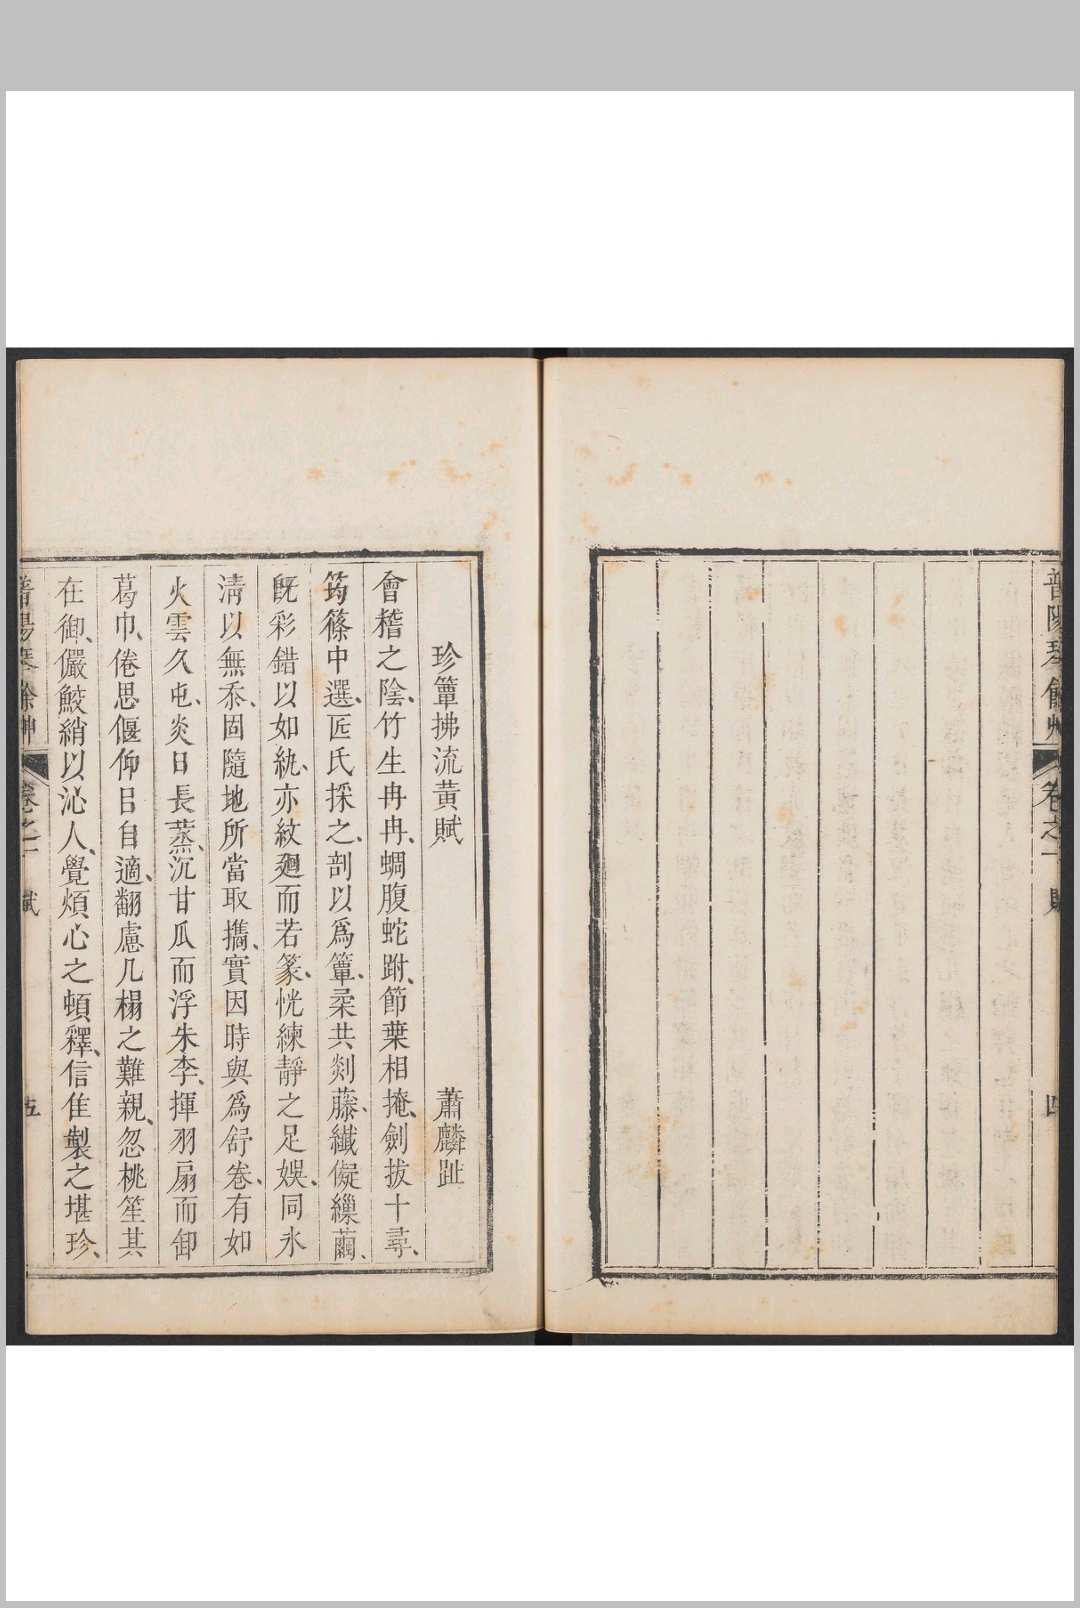 普陽琴餘艸 卷之一 賦 四
珍簟拂流黃賦 蕭麟趾
會稽之陰、竹生冉冉、蜩腹蛇跗、節葉相掩、劍拔十尋、
筠篠中選、匠氏採之、剖以爲簟、柔共剡藤、纖儗繅繭、
旣彩錯以如紈、亦紋廻而若篆、恍練靜之足娛、同氷
淸以無忝、固隨地所當取攜、實因時與爲舒卷、有如
火雲久屯、炎日長蒸、沉甘瓜而浮朱李、揮羽扇而卸
葛巾、倦思偃仰以自適、翻慮几榻之難親、忽桃笙其
在御、儼鮫綃以沁人、覺煩心之頓釋、信隹製之堪珍、
普陽琴餘艸 卷之一 賦 五